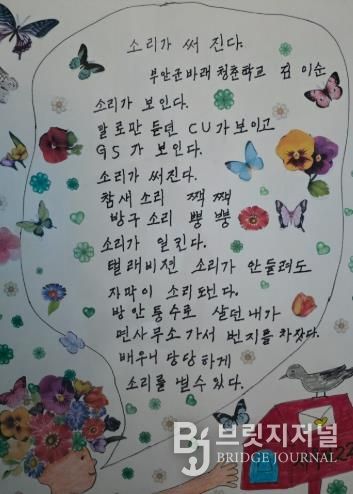 소리가 써 진다.
부안군 바래 청춘학교 김 이순
소리가 보인다.
말로만 듣던 CU가 보이고
GS 가 보인다.
소리가 써진다.
참새 소리 짹 짹
방구 소리 뿡 뿡
소리가 일킨다.
텔래비젼 소리가 안들려도
자막이 소리된다.
방안통수로 살던 내가
면사무소 가서 번지를 차잤다.
배우니 당당하게
소리를 낼수있다.
브릿지저널
BRIDGE JOURNAL